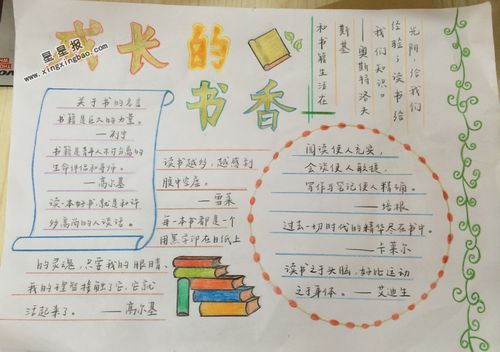 星星报
www.xingxingbao.com
成长的
书香
光阴,给我们
经验;读书给
我们知识。
——奥斯特洛夫
斯基
和书籍生活在
关于书的名言
书籍是巨大的力量。
——列宁
书籍是青年人不可分离的
生命伴侣和导师。
——高尔基
读一本好书,就是和许
多高尚的人谈话。
读书越多,越感到
腹中空虚。
——雪莱
每一本书都是一个
用黑字印在白纸上
的灵魂,只要我的眼睛、
我的理智接触了它,它就
活起来了。——高尔基
阅读使人充实,
会谈使人敏捷,
写作与笔记使人精确。
——培根
过去一切时代的精华尽在书中。
——卡莱尔
读书之于头脑,好比运动
之于身体。——艾迪生